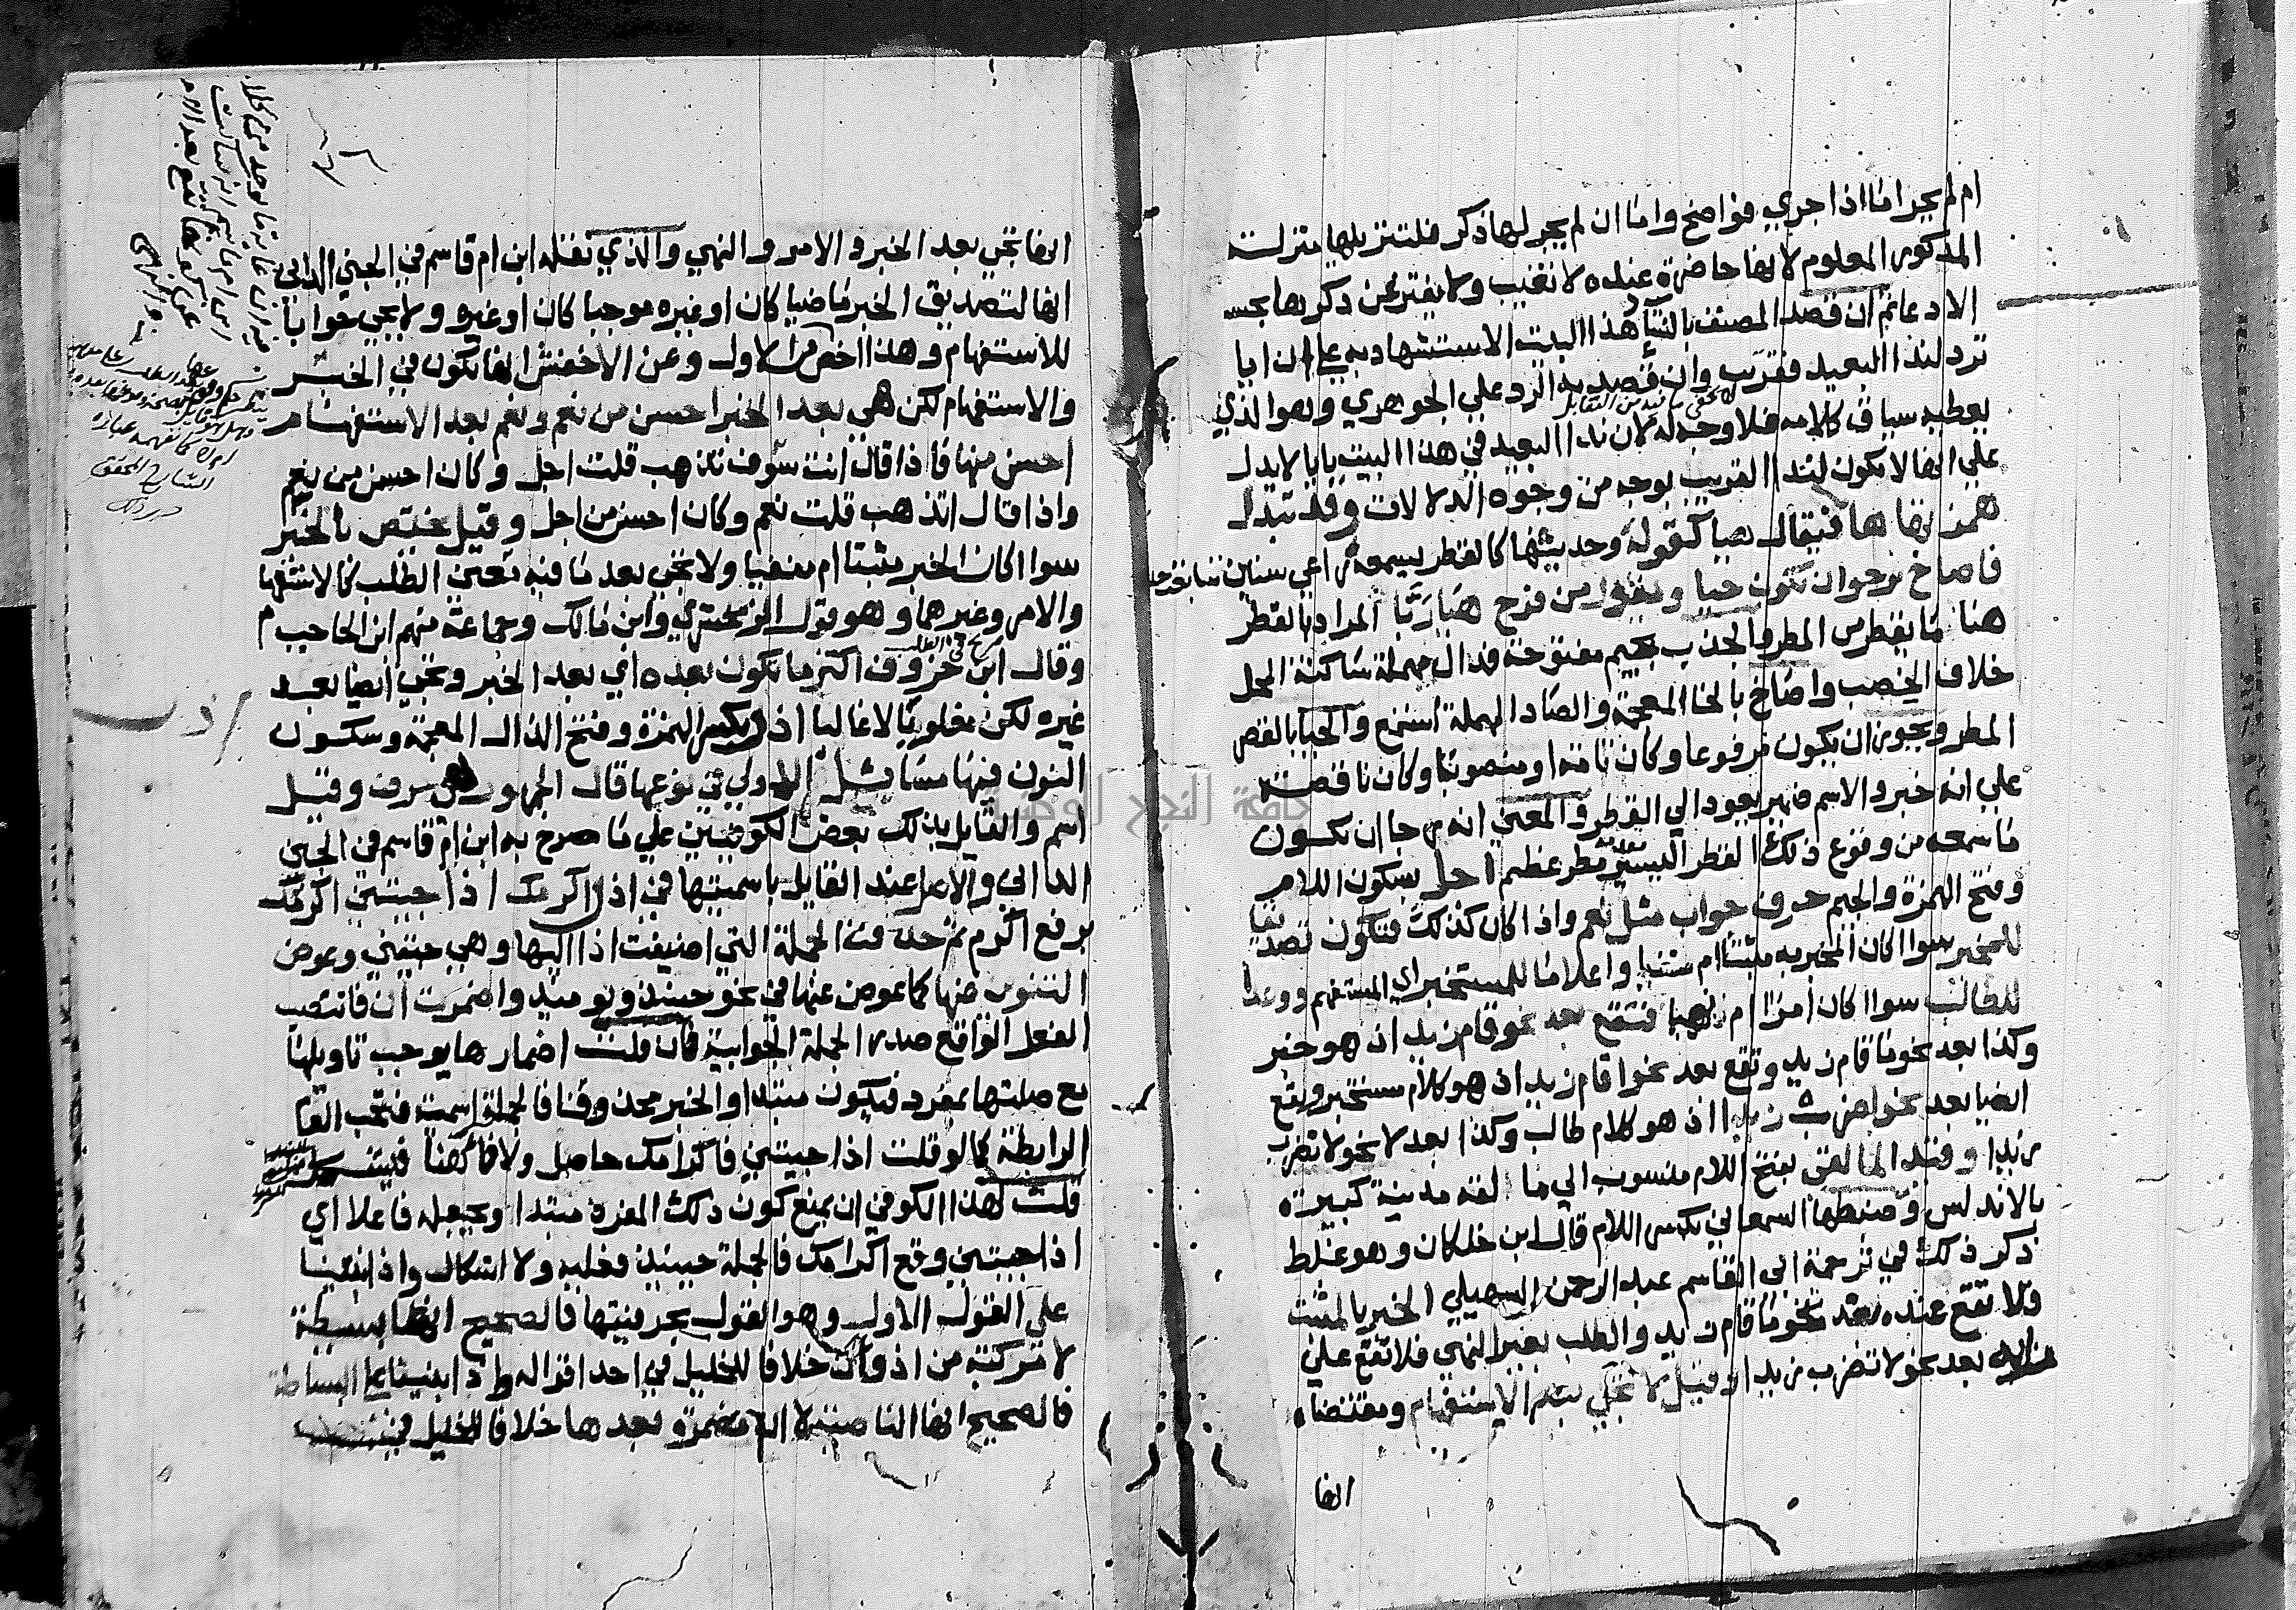 ام لم يجر اما اذا جري فواضح واما ان لم يجر لها ذكر فلتنزيلها منزلت
المذكور المعلوم لانها حاضرة عنده لا تغيب ولا يفتر عن ذكرها بحسب
الادعا ثم ان قصد المصنف بانشاد هذا البيت الاستشهاد به علي ان ايا
ترد لندا البعيد فقريب وان قصد به الرد علي الجوهري وهو الذي
يعطيه سياق كلامه فلا وجه له لان ندا البعيد في هذا البيت بايا لا يدل
علي انها لا يكون لندا القريب بوجه من وجوه الدلالات وقد تبدل
همزتها ها فيقال هيا كقوله وحديثها كالقطر يسمعه راعي سنين تتابعت جدبا
فاصاخ يرجوا ان يكون حيا ويقول من فرح هيا ربا المراد بالقطر
هنا ما يقطر من المطر والجدب بجيم مفتوحة فدال مهملة ساكنة المحل
خلاف الخصب واصاخ بالخا المعجمة والصاد المهملة استمع والحيا بالقصر
المطر ويجوز ان يكون مرفوعا وكان تامة او منصوبا وكان ناقصة
علي انه خبر والاسم ضمير يعود الي القطر والمعني انه رجا ان يكون
ما سمعه من وقوع ذلك القطر اليسير مقدمة مطر عظيم اجل بسكون اللام
وفتح الهمزة والجيم حرف جواب مثل نعم واذا كان كذلك فتكون تصديقا
للمخبر سوا كان المخبر به مثبتا ام منفيا واعلاما للمستخبر اي المستفهم ووعدا
للطالب سوا كان امرا ام نهيا فتقع بعد نحو قام زيد اذ هو خبر
وكذا بعد نحو ما قام زيد وتقع بعد نحو اقام زيد اذ هو كلام مستخبر ويقع
ايضا بعد نحو اضرب زيدا اذ هو كلام طالب وكذا بعد لا نحو لا تضرب
زيدا وقيد المالقي بفتح اللام منسوب الي مالقه مدينة كبيرة
بالاندلس وضبطها السمعاني بكسر اللام قال ابن خلكان وهو غلط
ذكر ذلك في ترجمة ابي القاسم عبد الرحمن السهيلي الخبر بالمثبت
فلا تقع عنده بعد نحو ما قام زيد والطلب بغير النهي فلا تقع علي
هذا بعد نحو لا تضرب زيدا وقيل لا تجي بعد الاستفهام ومقتضاه
انها
انها تجي بعد الخبر والامر والنهي والذي نقله ابن ام قاسم في الجني الداني
انها لتصديق الخبر ماضيا كان او غيره موجبا كان او غيره ولا يجي جوابا
للاستفهام وهذا اخص من الاول وعن الاخفش انها تكون في الخبر
والاستفهام لكن هي بعد الخبر احسن من نعم ونعم بعد الاستفهام
احسن منها فاذا قال انت سوف تذهب قلت اجل وكان احسن من نعم
واذا قال اتذهب قلت نعم وكان احسن من اجل وقيل يختص بالخبر
سوا كان الخبر مثبتا ام منفيا ولا تجي بعد ما فيه معني الطلب كالاستفهام
والامر وغيرهما وهو قول الزمخشري وابن مالك وجماعة منهم ابن الحاجب
وقال ابن خروف اكثر ما تكون بعده اي بعد الخبر وتجي ايضا بعد
غيره لكن مغلوبا لا غالبا اذن بكسر الهمزة وفتح الذال المعجمة وسكون
النون فيها مسائل الاولي في نوعها قال الجمهور هي حرف وقيل
اسم والقايل بذلك بعض الكوفيين علي ما صرح به ابن ام قاسم في الجني
الداني والاصل عند القايل باسميتها في اذن اكرمك اذا جيتني اكرمك
برفع اكرم ثم حذفت الجملة التي اضيفت اذا اليها وهي جيتني وعوض
التنوين منها كما عوض عنها في نحو حينيذ ويوميذ واضمرت ان فانتصب
الفعل الواقع صدر الجملة الجوابية فان قلت اضمارها يوجب تاويلها
مع صلتها بمفرد فيكون مبتدا والخبر محذوفا فالجملة اسمية فتجب الفا
الرابطة كما لو قلت اذا جيتني فاكرامك حاصل ولا فا هنا
قلت لهذا الكوفي ان يمنع كون ذلك المفرد مبتدا ويجعله فاعلا اي
اذا جيتني وقع اكرامك فالجملة حينيذ فعلية ولا اشكال واذا بنينا
علي القول الاول وهو القول بحرفيتها فالصحيح انها بسيطة
لا مركبة من اذ وان خلافا للخليل في احد اقواله واذا بنينا علي البساطة
فالصحيح انها الناصبة لا ان مضمرة بعدها خلافا للخليل
اذن